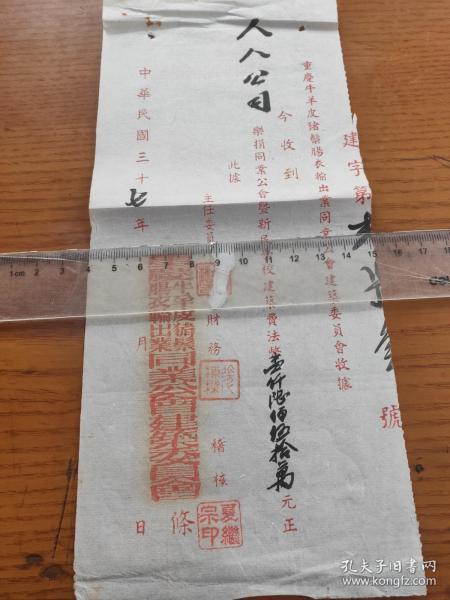 建字第 號
重慶牛羊皮豬鬃腸衣輸出業同業公會建築委員會收據
今收到
人人公司
樂捐同業公會暨新 校建築費法幣壹仟 佰伍拾萬元正
此據
主任委員 財務 稽核
夏繼宗印
中華民國三十七年 月 日
條
牛羊皮豬鬃腸衣輸出業同業公會建築委員會
孔夫子旧书网
www.kongfz.com
0 1cm 2 3 4 5 6 7 8 9 10 11 12 13 14 15 16 17 18